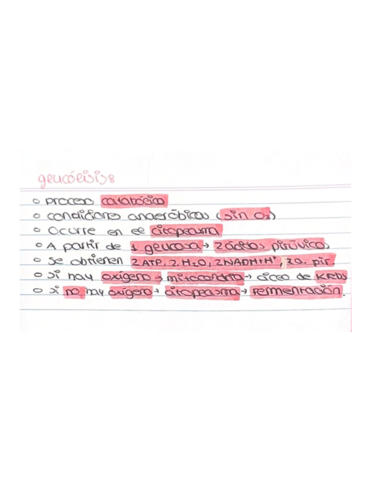 glucólisis:
o proceso catabólico
o condiciones anaeróbicas (sin O₂)
o Ocurre en el citoplasma
o A partir de 1 glucosa → 2 ácidos pirúvicos
o se obtienen 2 ATP, 2 H₂O, 2NADH+H⁺, 2a. pir.
o si hay oxígeno → mitocondria → ciclo de KREBS
o si no hay oxígeno → citoplasma → fermentación.